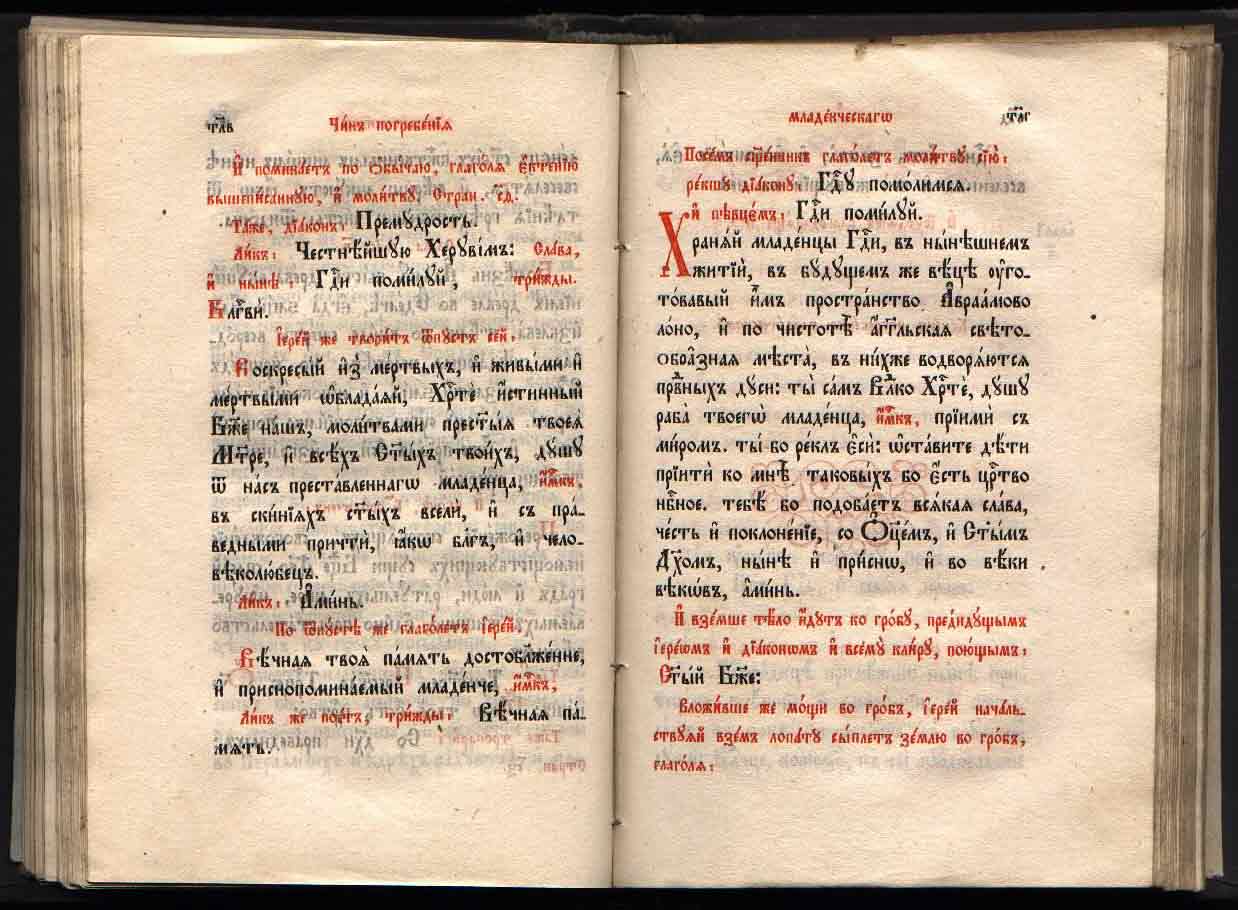 тл҃в
Чи́нъ погребе́нїѧ
И҆ помина́етъ по ѻ҆бы́чаю, глаго́лѧ є҆ктенїю̀
вышепи́санную, и҆ моли́тву, Стран. с҃д.
Та́же, дїа́конъ: Премꙋ́дрость.
Ли́къ: Честнѣ́йшую Херꙋві́мъ: Сла́ва,
и҆ ны́нѣ: Гд҇и поми́лꙋй, три́жды.
Блг҇ви́.
І҆ере́й же твори́тъ ѿпꙋ́стъ се́й.
Воскресы́й и҆з̾ ме́ртвыхъ, и҆ живы́ми и҆
ме́ртвыми ѡ҆блада́ѧй, Хрт҇ѐ и҆́стинный
Бж҃е на́шъ, моли́твами прест҃ы́ѧ твоеѧ̀
Мт҃ре, и҆ всѣ́хъ Ст҃ы́хъ твои́хъ, дꙋ́шꙋ
ѿ на́съ преста́вленнагѡ младе́нца, и҆́мкъ,
въ ски́нїѧхъ ст҃ы́хъ вселѝ, и҆ съ пра-
ведными причтѝ, ꙗ҆́кѡ бл҃гъ, и҆ чело-
вѣколю́бецъ.
Ли́къ: А҆ми́нь.
По ѿпꙋ́стѣ же глаго́летъ і҆ере́й,
Вѣ́чнаѧ твоѧ̀ па́мѧть достобл҃же́нне,
и҆ приснопомина́емый младе́нче, и҆́мкъ,
Ли́къ же пое́тъ, три́жды: Вѣ́чнаѧ па́-
мѧть.
младе́нческагѡ
тл҃г
Посе́мъ сщ҃е́нникъ глаго́летъ моли́твꙋ сїю̀:
ре́кшꙋ дїа́конꙋ: Гд҇ꙋ помо́лимсѧ.
И҆ пѣвце́мъ: Гд҇и поми́лꙋй.
Хранѧ́й младе́нцы Гд҇и, въ ны́нѣшнемъ
житїѝ, въ бꙋ́дꙋщемъ же вѣ́цѣ ᲂу҆гото́-
товавый и҆̀мъ простра́нство А҆враа́мово
ло́но, и҆ по чистотѣ̀ а҆́гг҃льскаѧ свѣто-
ѻбра̑знаѧ мѣста̀, въ ни́хже водворѧ́ютсѧ
првⷣныхъ дꙋ́си: ты̀ са́мъ Вл҃ко Хрт҇ѐ, дꙋ́шꙋ
раба̀ твоегѡ̀ младе́нца, и҆́мкъ, прїимѝ съ
ми́ромъ. ты́ бо ре́клъ є҆сѝ: ѡ҆ста́вите дѣ́ти
прїитѝ ко мнѣ̀ таковы́хъ бо є҆́сть црт҇во
нб҇ное. тебѣ́ бо подоба́етъ всѧ́каѧ сла́ва,
че́сть и҆ поклоне́нїе, со Ѻ҆ц҃е́мъ, и҆ Ст҃ы́мъ
Дх҃омъ, ны́нѣ и҆ при́снѡ, и҆ во вѣ́ки
вѣкѡ́въ, а҆ми́нь.
И҆ взе́мше тѣ́ло и҆́дꙋтъ ко гро́бꙋ, предидꙋ́щымъ
і҆ере́ѡм и҆ дїа́конѡм и҆ всемꙋ̀ кли́рꙋ, пою́щымъ:
Ст҃ы́й Бж҃е:
Вложи́вше же мо́щи во гро́бъ, і҆ере́й нача́ль-
ствꙋѧй взе́мъ лопа́тꙋ сы́плетъ зе́млю во гро́бъ,
глаго́лѧ: